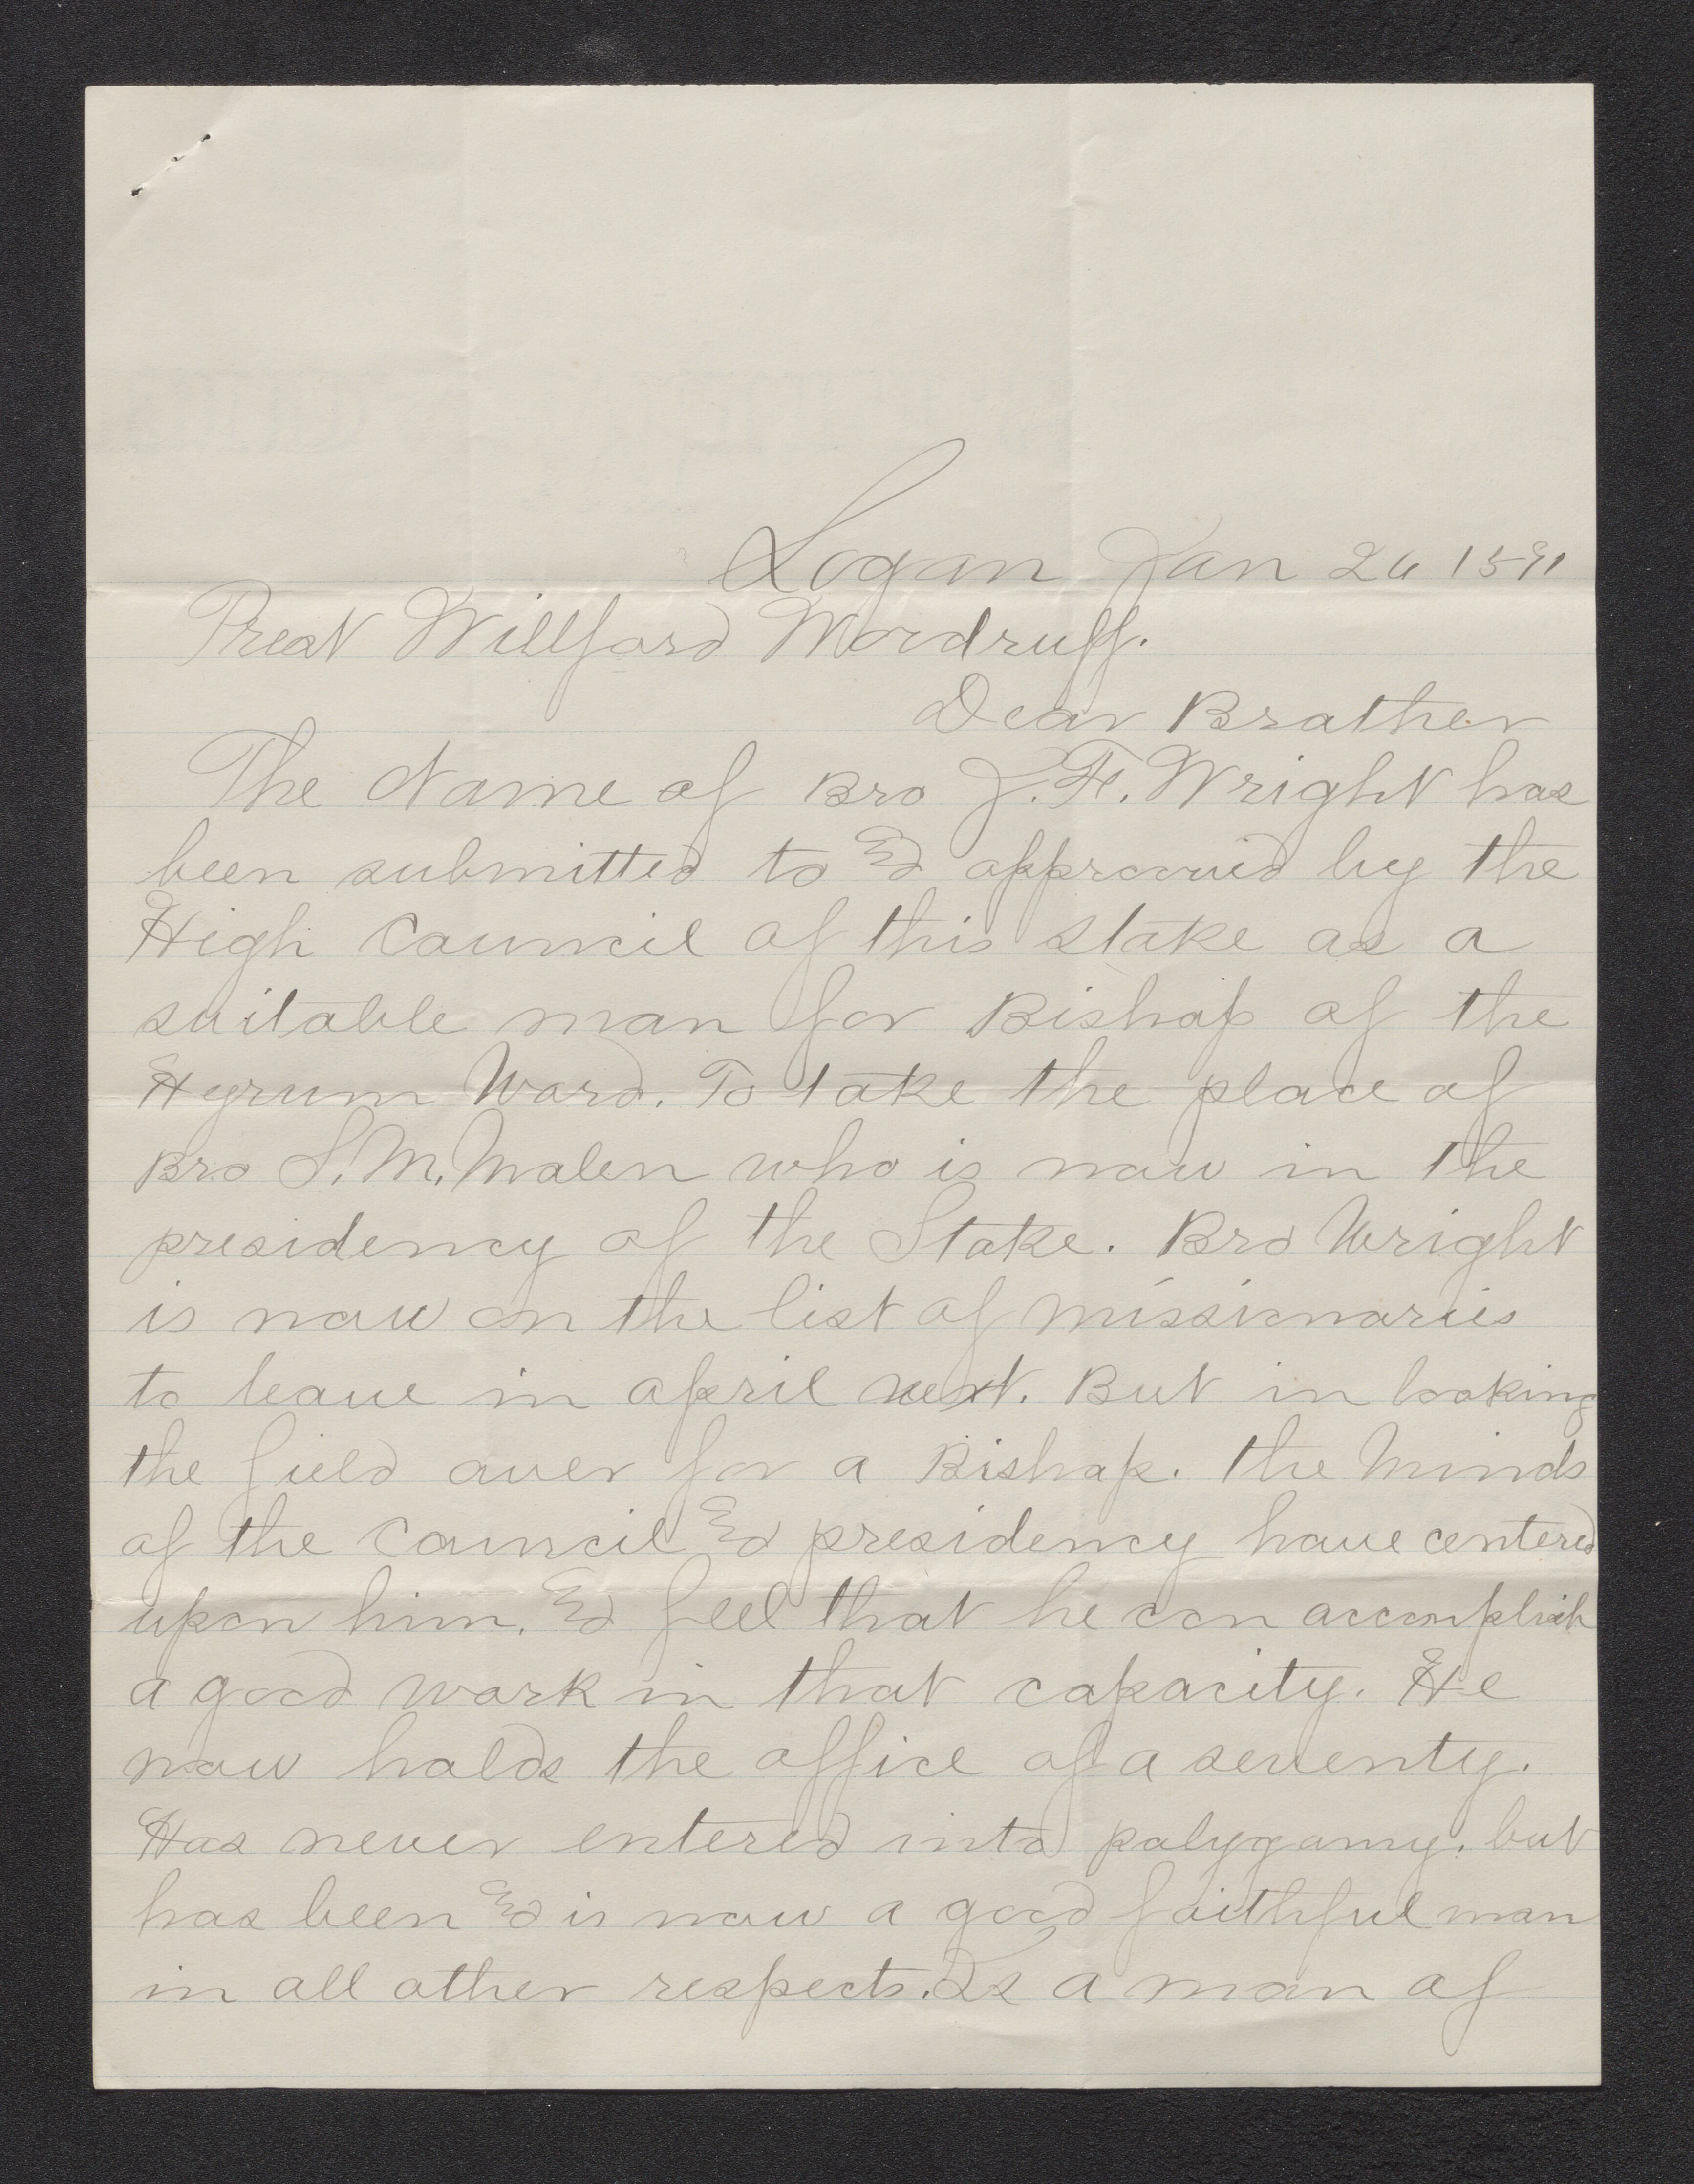 Logan Jan 26 1891
Prest Willford Woodruff.
Dear Brother
The Name of Bro J. F. Wright has
been submitted to & approoved by the
High Council of this stake as a
suitable man for Bishop of the
Hyrum Ward. To take the place of
Bro S. M. Molen who is now in the
presidency of the Stake. Bro Wright
is now on the list of missionaries
to leave in April next. But in looking
the field over for a Bishop. the minds
of the Council & presidency have centered
upon him. & feel that he can accomplish
a good work in that capacity. He
now holds the office of a seventy.
Has never entered into polygamy. but
has been & is now a good faithful man
in all other respects. Is a man of